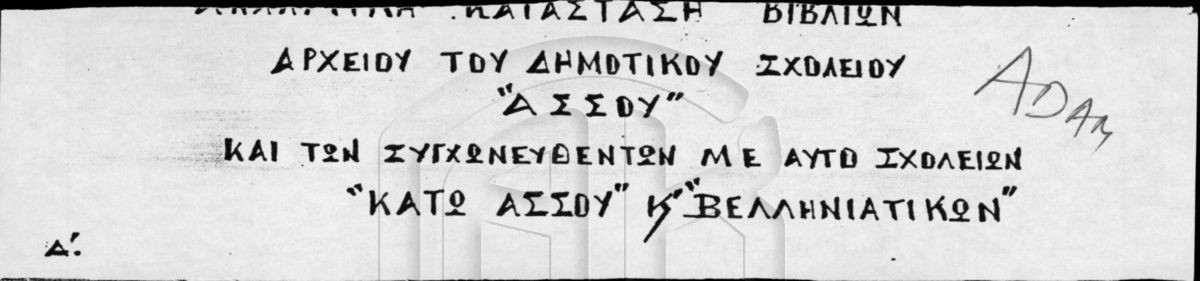 ΑΝΑΛΥΤΙΚΗ ΚΑΤΑΣΤΑΣΗ ΒΙΒΛΙΩΝ
ΑΡΧΕΙΟΥ ΤΟΥ ΔΗΜΟΤΙΚΟΥ ΣΧΟΛΕΙΟΥ
"ΑΣΣΟΥ"
ΚΑΙ ΤΩΝ ΣΥΓΧΩΝΕΥΘΕΝΤΩΝ ΜΕ ΑΥΤΟ ΣΧΟΛΕΙΩΝ
"ΚΑΤΩ ΑΣΣΟΥ" Κ' "ΒΕΛΛΗΝΙΑΤΙΚΩΝ"
Α'.